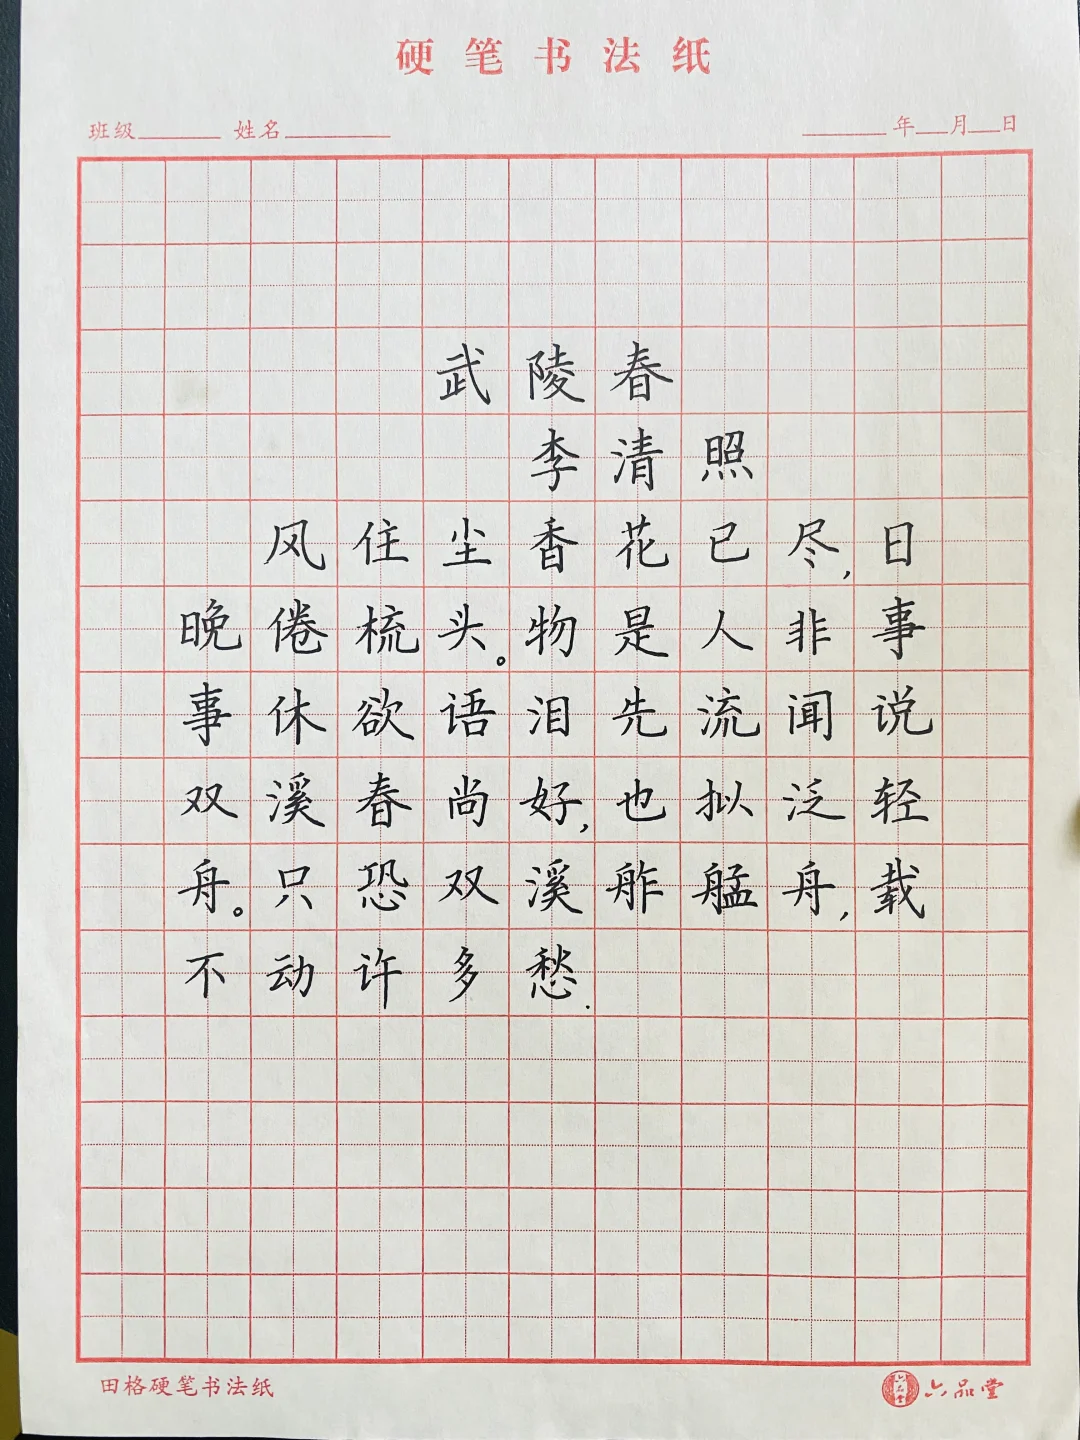 硬笔书法纸
班级 姓名 年 月 日
武陵春
李清照
风住尘香花已尽,日
晚倦梳头。物是人非事
事休欲语泪先流闻说
双溪春尚好,也拟泛轻
舟。只恐双溪舴艋舟,载
不动许多愁.
田格硬笔书法纸
六品堂 六品堂